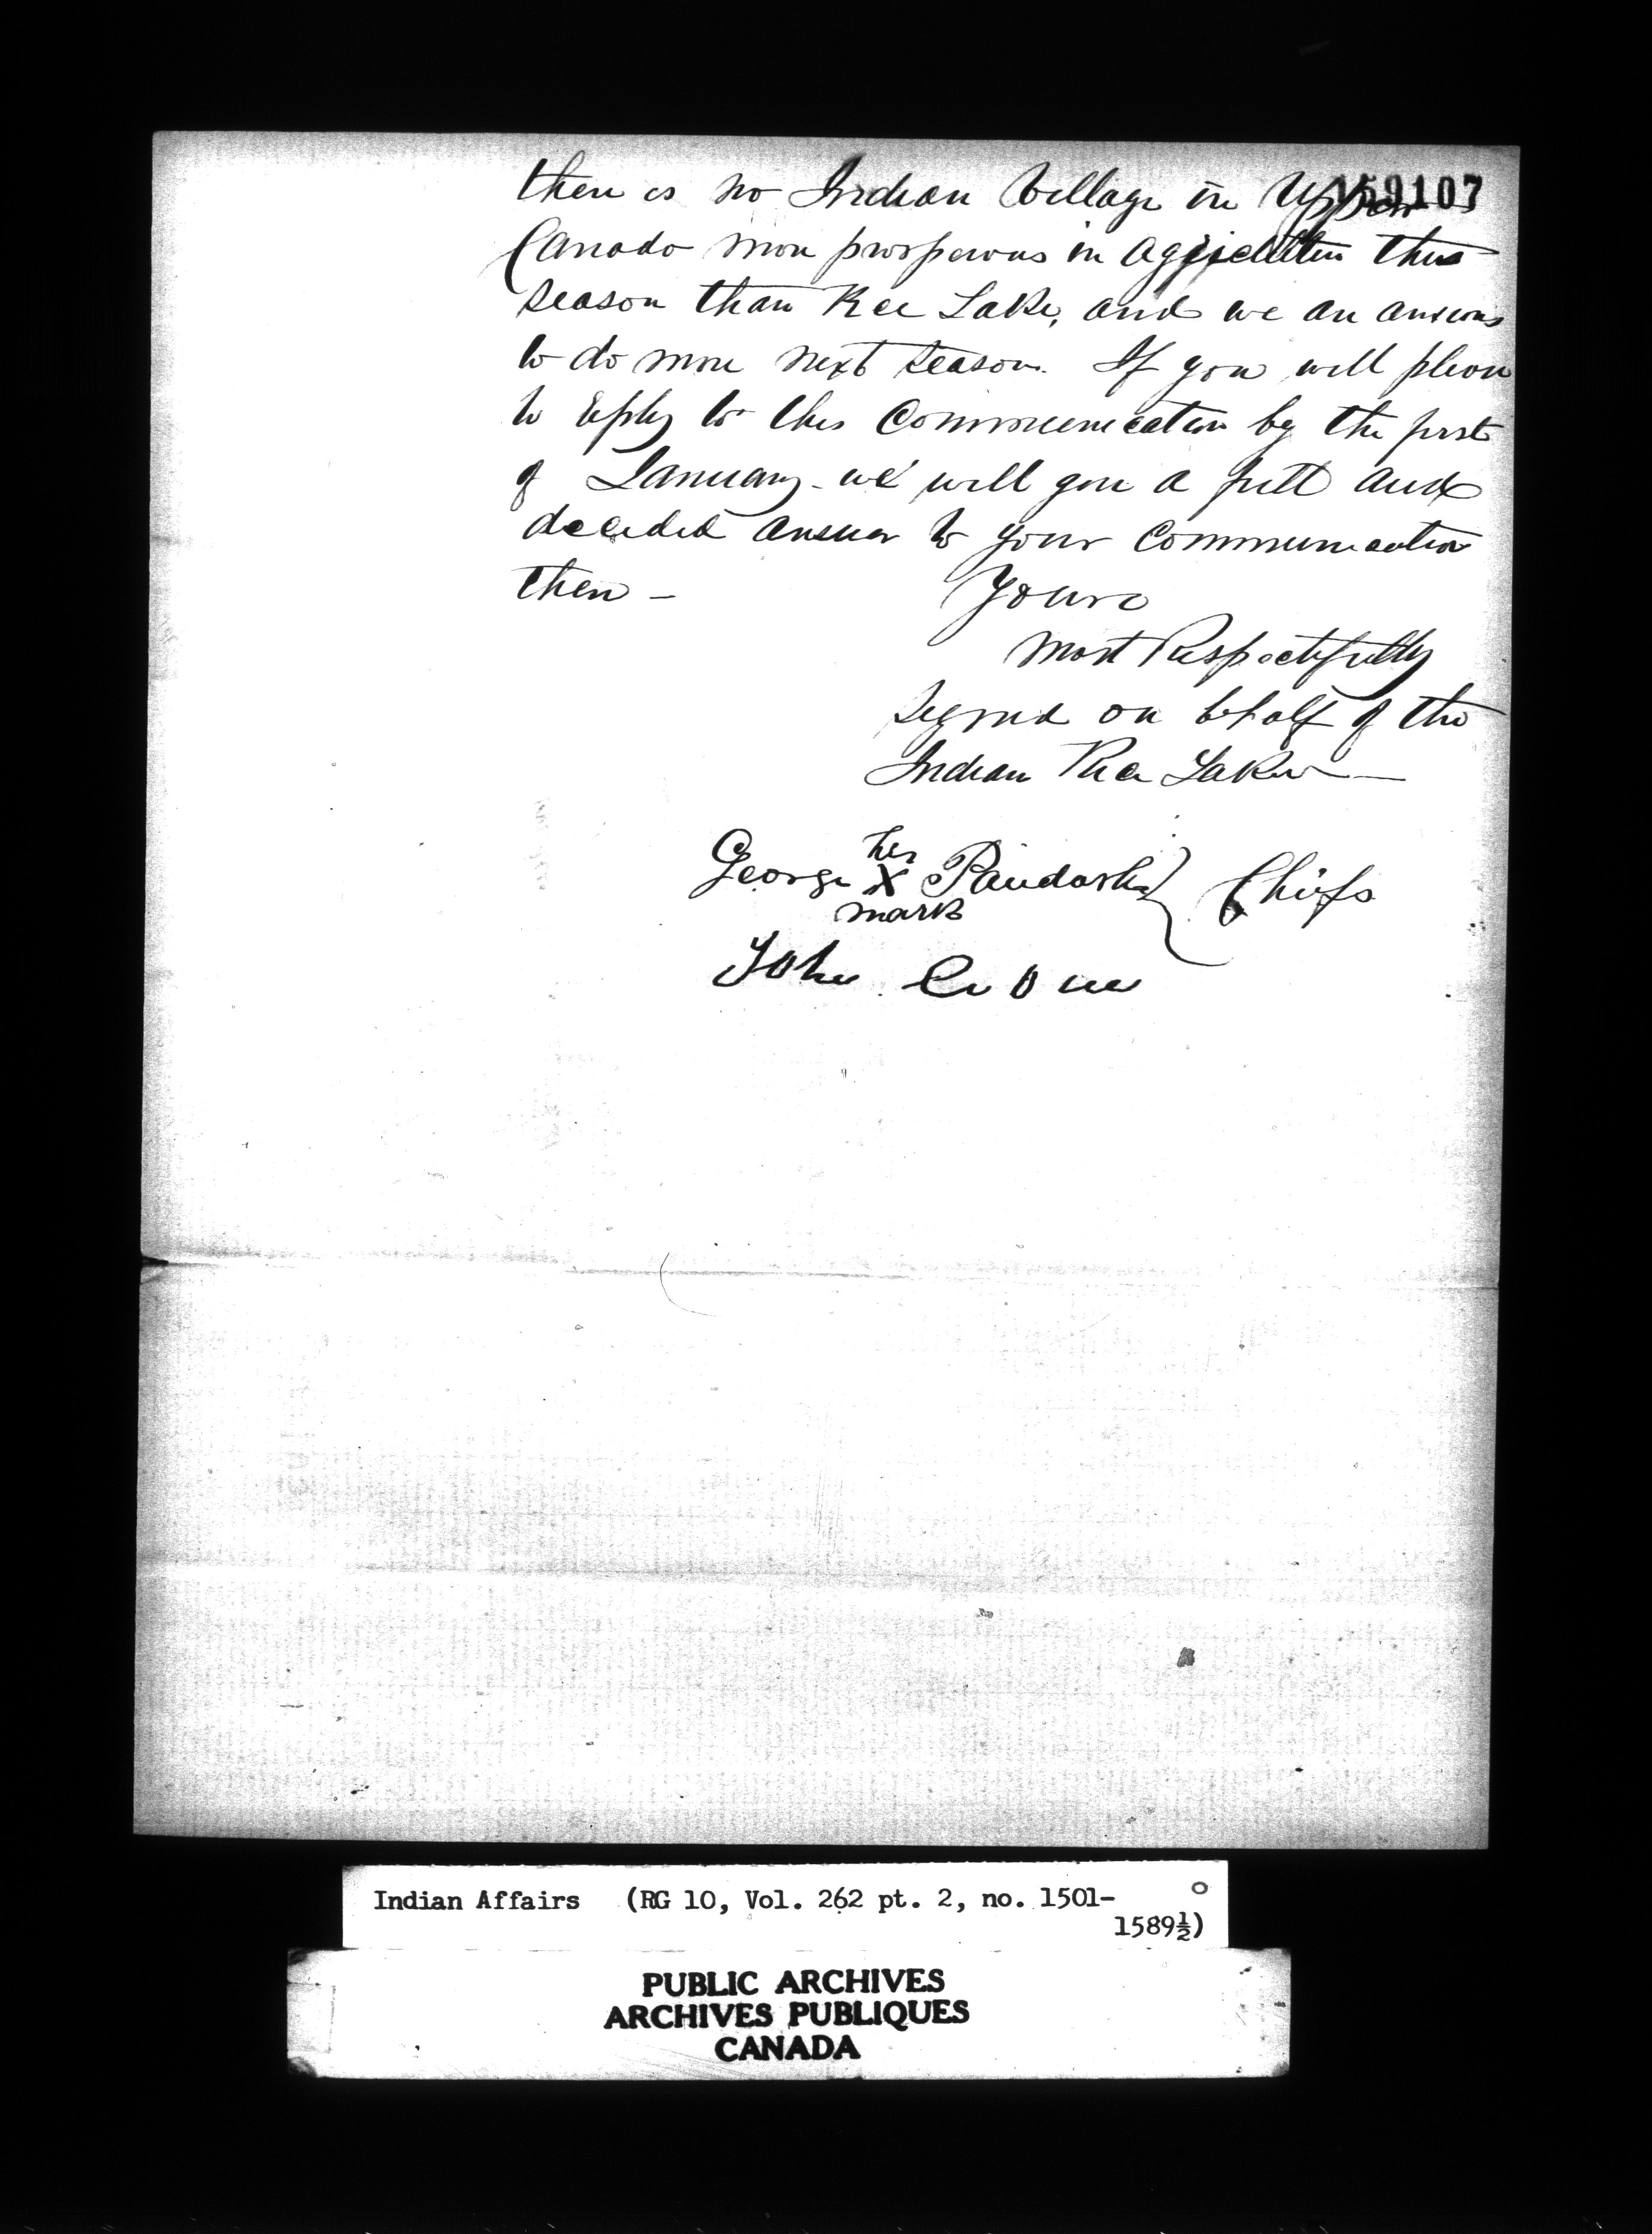 159107
there is no Indian Village in Upper
Canada more prosperous in Agriculture this
season than Rice Lake, and we are anxious
to do more next season. If you will please
to reply to this Communication by the first
of January - we will give a full and
decided answer to your Communication
then -
Yours
Most Respectfully
Signed on behalf of the
Indian Rice Lake -
his
George X Paudash } Chiefs
mark
John Crow
Indian Affairs (RG 10, Vol. 262 pt. 2, no. 1501-
1589½)
PUBLIC ARCHIVES
ARCHIVES PUBLIQUES
CANADA